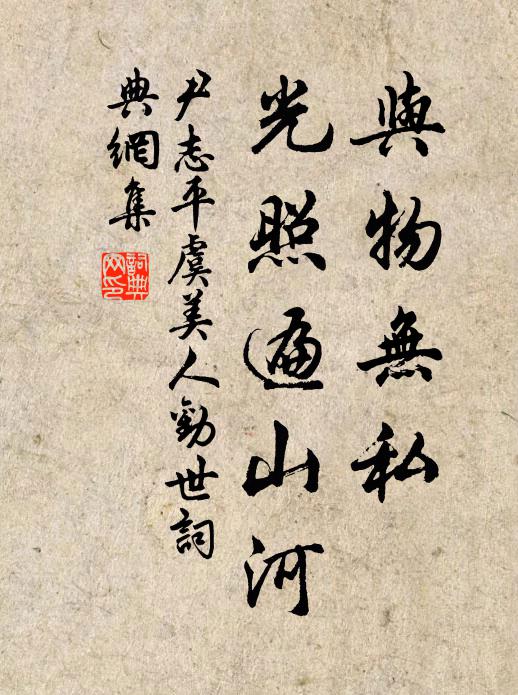 與物無私
光照遍山河
尹志平虞美人勸世詞
典網集
詞典網印